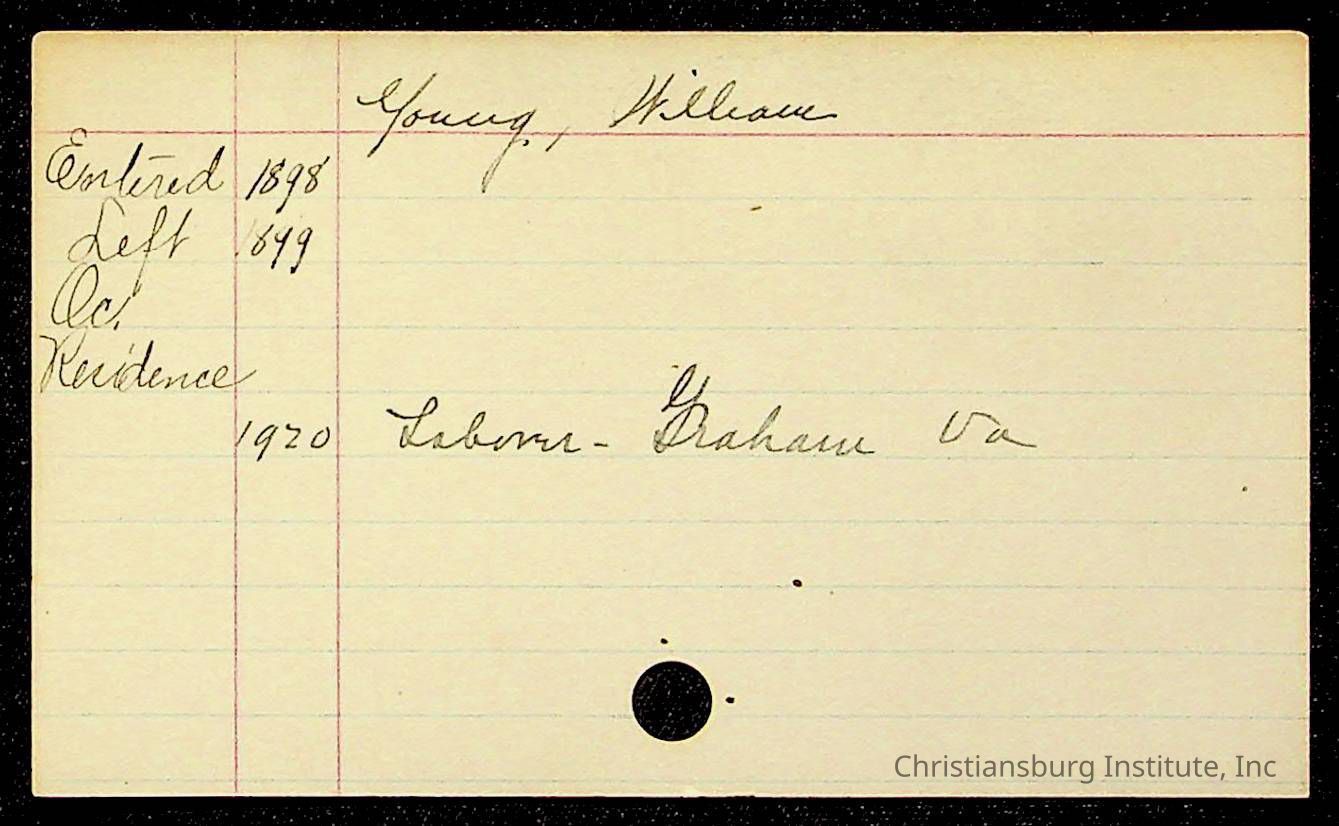 Young, William
Entered 1898
Left 1899
Oc.
Residence
1920 Laborer - Graham Va
Christiansburg Institute, Inc